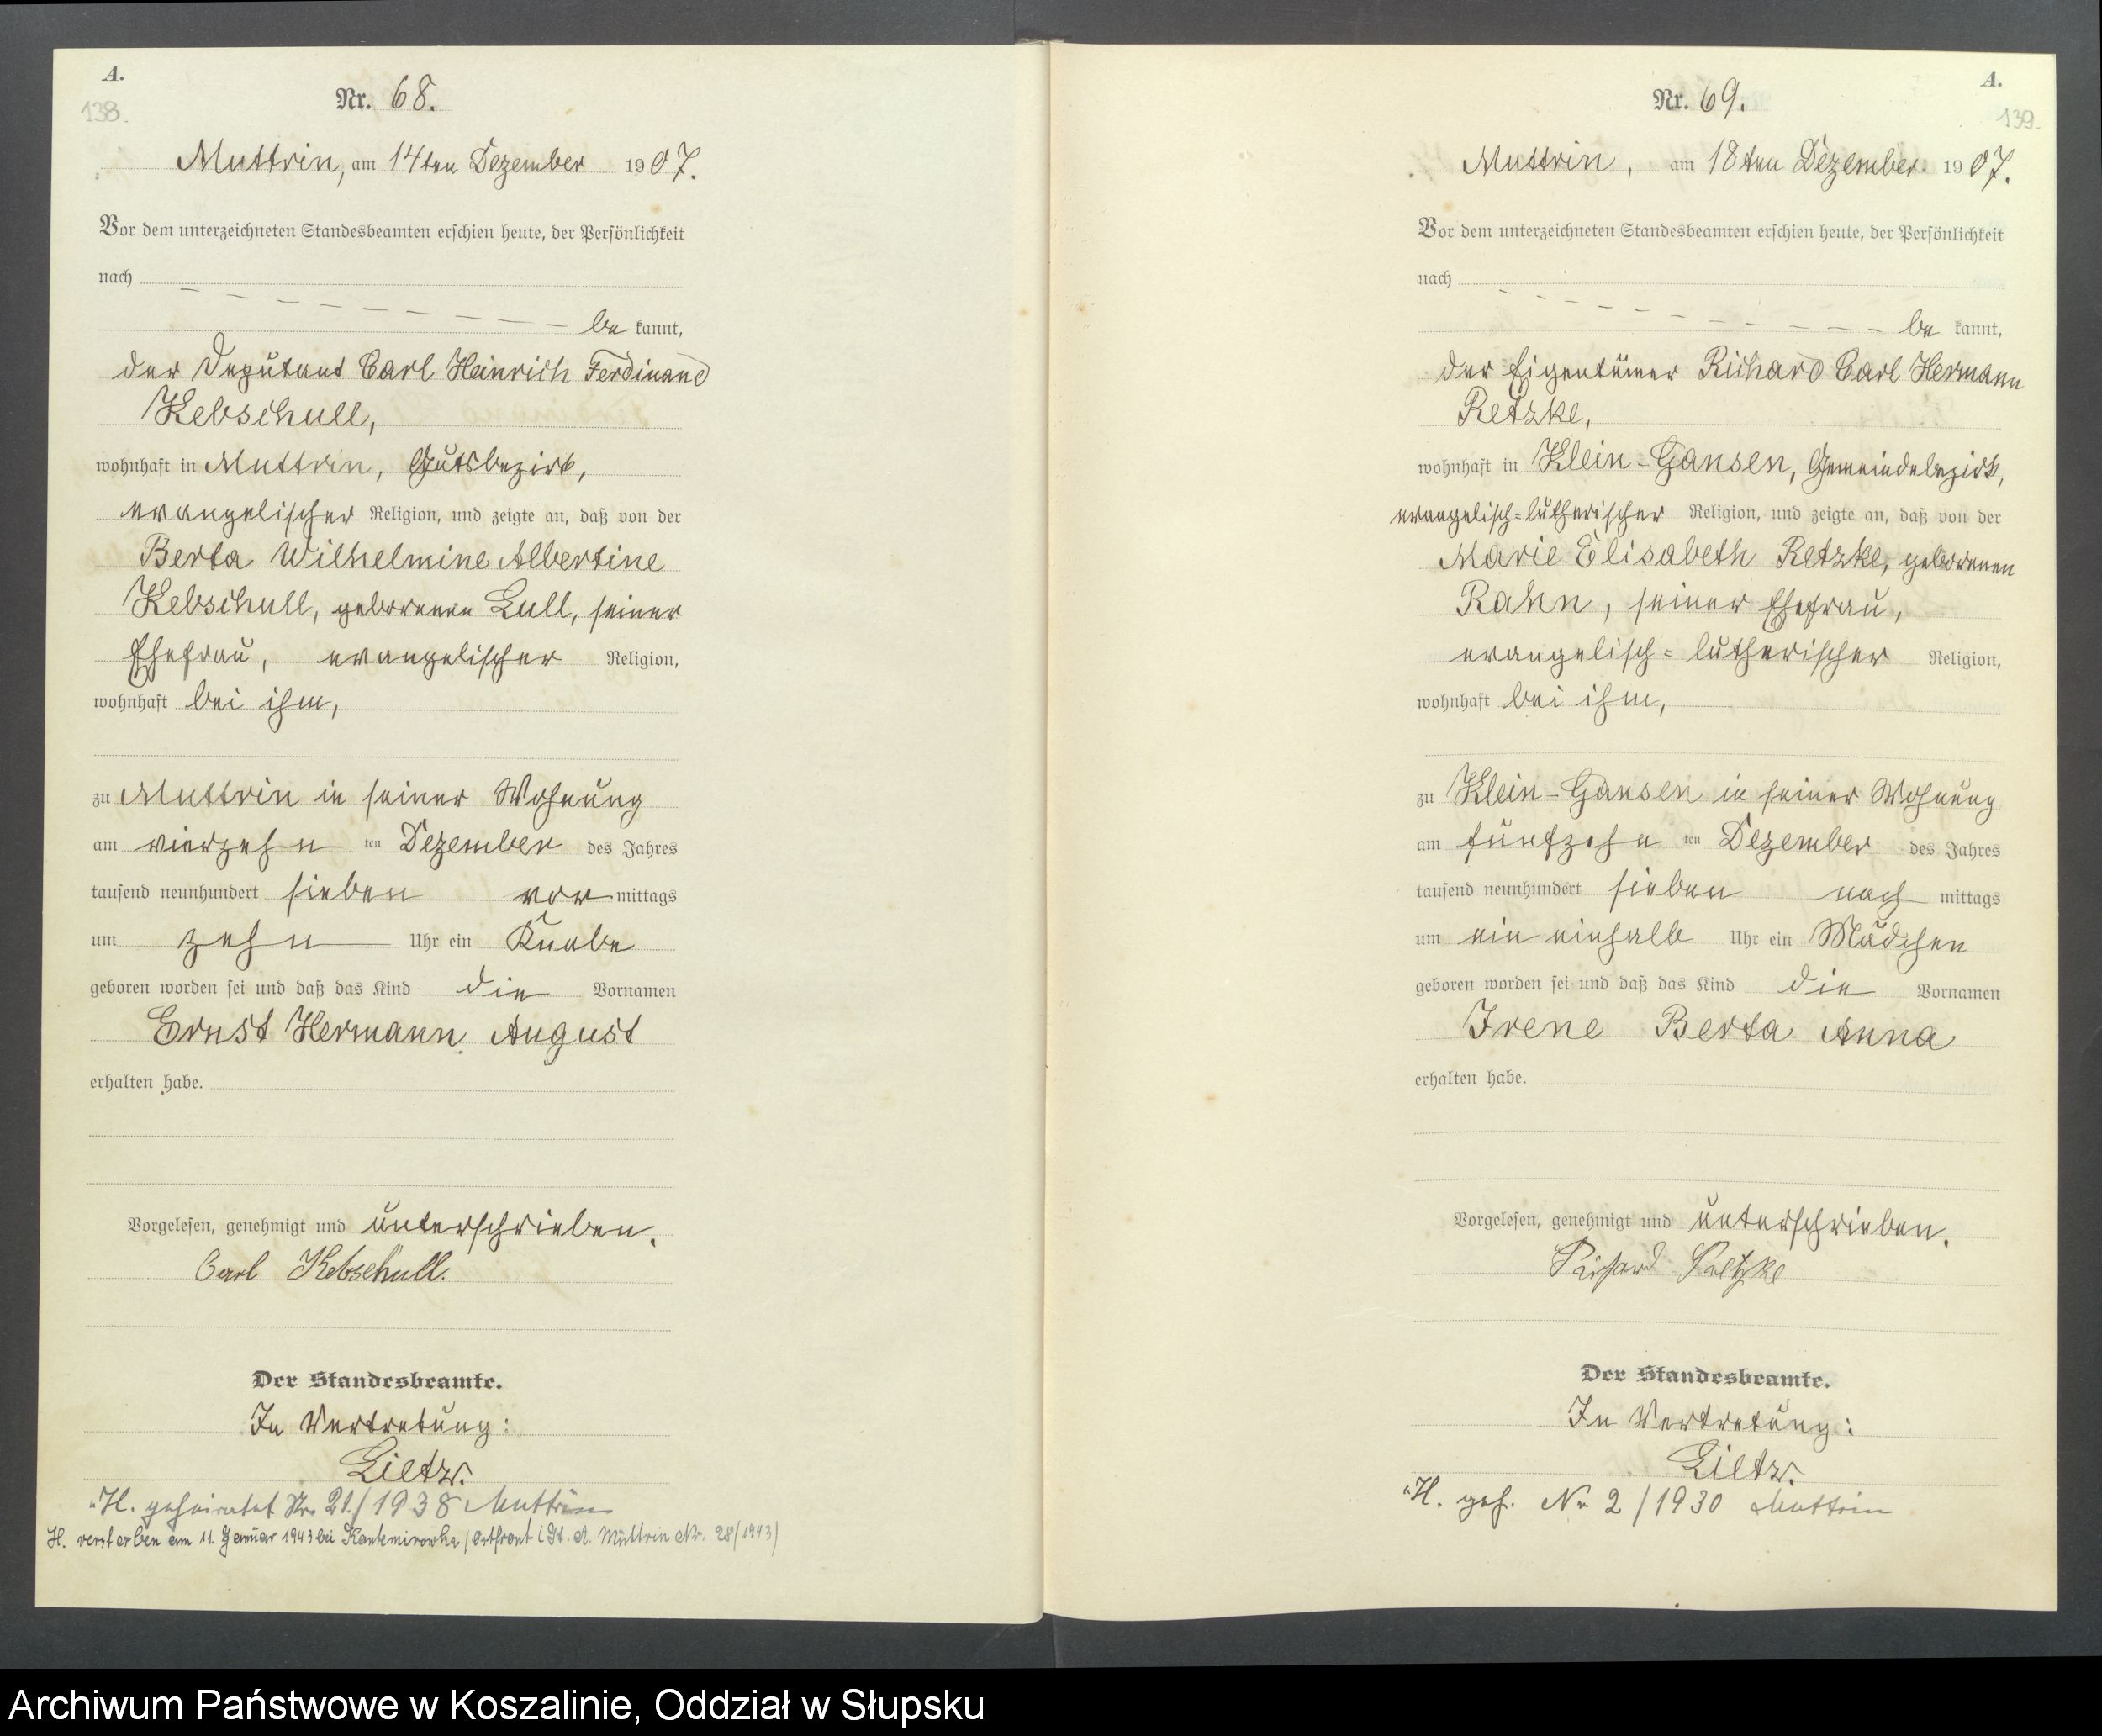 A.
138.
Nr. 68.
Muttrin, am 14ten Dezember 1907.
Vor dem unterzeichneten Standesbeamten erschien heute, der Persönlichkeit
nach
be kannt,
der Deputant Carl Heinrich Ferdinand
Kebschull,
wohnhaft in Muttrin, Gutsbezirk,
evangelischer Religion, und zeigte an, daß von der
Berta Wilhelmine Albertine
Kebschull, geborenen Lull, seiner
Ehefrau, evangelischer Religion,
wohnhaft bei ihm,
zu Muttrin in seiner Wohnung
am vierzehn ten Dezember des Jahres
tausend neunhundert sieben vor mittags
um zehn Uhr ein Knabe
geboren worden sei und daß das Kind die Vornamen
Ernst Hermann August
erhalten habe.
Vorgelesen, genehmigt und unterschrieben.
Carl Kebschull.
Der Standesbeamte.
In Vertretung:
Lietz.
H. geheiratet Nr. 21/1938 Muttrin
H. verstorben am 11. Januar 1943 bei Kantemirowka / Ostfront (St. A. Muttrin Nr. 28/1943)
A.
139.
Nr. 69.
Muttrin, am 18ten Dezember 1907.
Vor dem unterzeichneten Standesbeamten erschien heute, der Persönlichkeit
nach
be kannt,
der Eigentümer Richard Carl Hermann
Retzke,
wohnhaft in Klein-Gansen, Gemeindebezirk,
evangelisch-lutherischer Religion, und zeigte an, daß von der
Marie Elisabeth Retzke, geborenen
Rahn, seiner Ehefrau,
evangelisch-lutherischer Religion,
wohnhaft bei ihm,
zu Klein-Gansen in seiner Wohnung
am fünfzehn ten Dezember des Jahres
tausend neunhundert sieben nach mittags
um ein einhalb Uhr ein Mädchen
geboren worden sei und daß das Kind die Vornamen
Irene Berta Anna
erhalten habe.
Vorgelesen, genehmigt und unterschrieben.
Richard Retzke
Der Standesbeamte.
In Vertretung:
Lietz.
H. geh. Nr 2/1930 Muttrin
Archiwum Państwowe w Koszalinie, Oddział w Słupsku